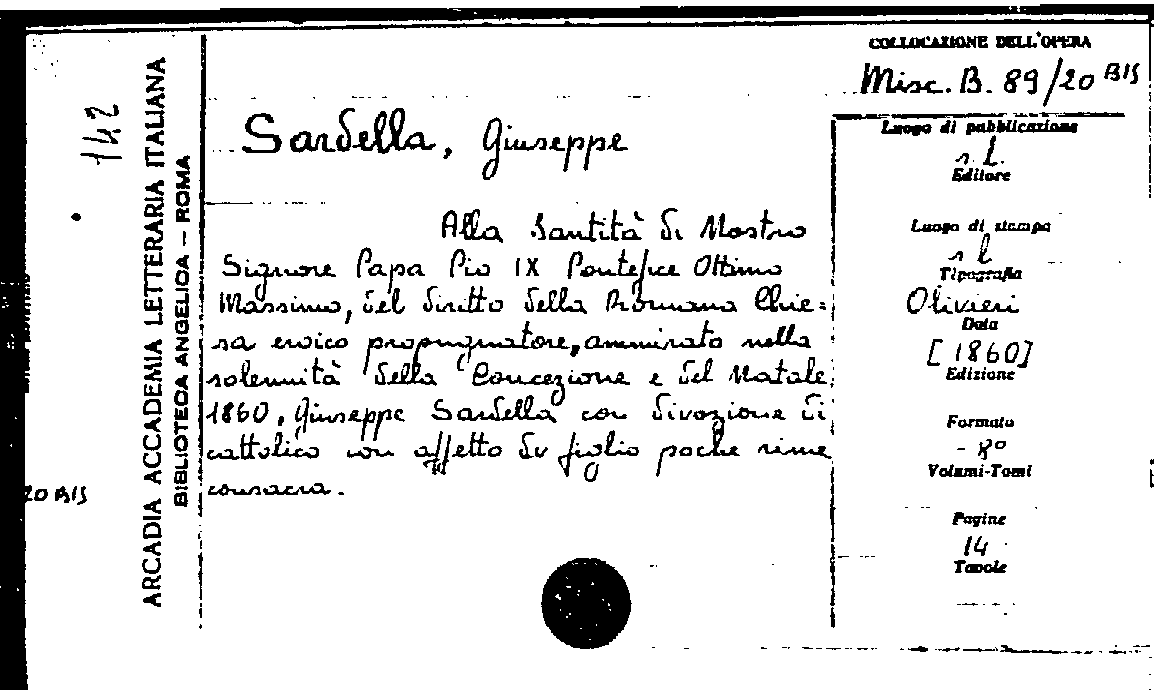 COLLOCAZIONE DELL'OPERA
Misc. B. 89/20 BIS
142
ARCADIA ACCADEMIA LETTERARIA ITALIANA
BIBLIOTECA ANGELICA – ROMA
Sardella, Giuseppe
Alla Santità di Nostro
Signore Papa Pio IX Pontefice Ottimo
Massimo, del diritto della Romana Chie=
sa eroico propugnatore, ammirato nella
solennità della Concezione e del Natale
1860, Giuseppe Sardella con divozione di
cattolico con affetto di figlio poche rime
consacra.
Luogo di pubblicazione
s. l.
Editore
Luogo di stampa
s l
Tipografia
Olivieri
Data
[1860]
Edizione
Formato
- 8º
Volumi-Tomi
Pagine
14
Tavole
20 BIS